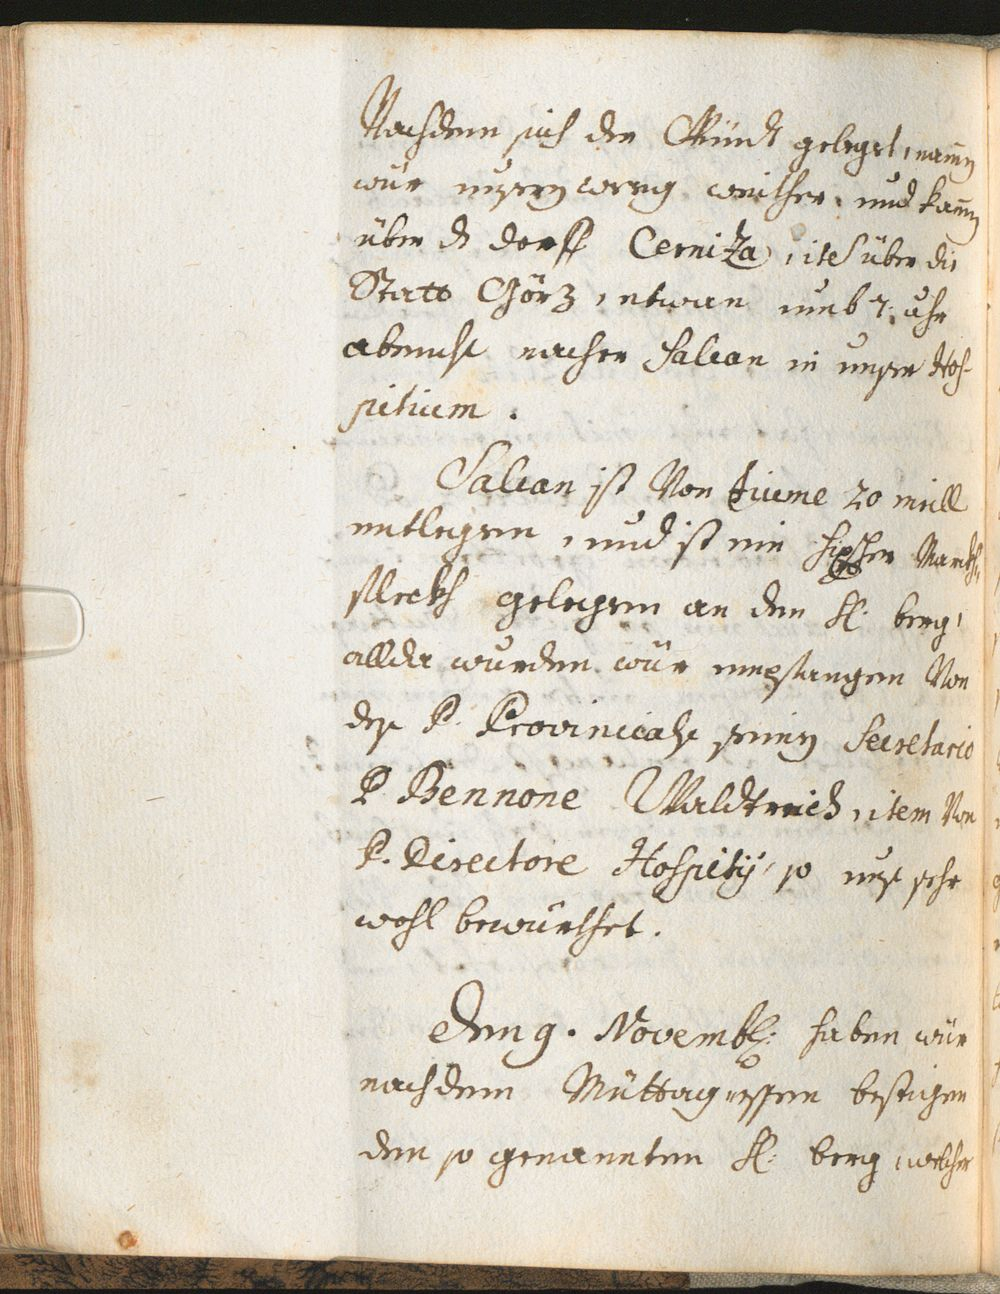 Nachdem sich der Wündt gelegt, namen
wür unsern weeg weither, und kamen
über ds dorff Cerniza, ite&shy;m über die
Statt Görz, etwan umb 7. uhr
abents nacher Salcan in unser Hos-
pitium.
Salcan ist Von fiume 20 meill
entlegen, und ist ein hipscher Marckh-
fleckh gelegen an den H: berg,
allda wurden wür empfangen Von
dess P. Provincials seinen Secretario
P. Bennone Waldtreich, item Von
P. Directore Hospitij, so unss sehr
wohl bewürthet.
Den 9. Novemb: haben wür
nach dem Müttag essen bestigen
den so genannten H: berg, welcher